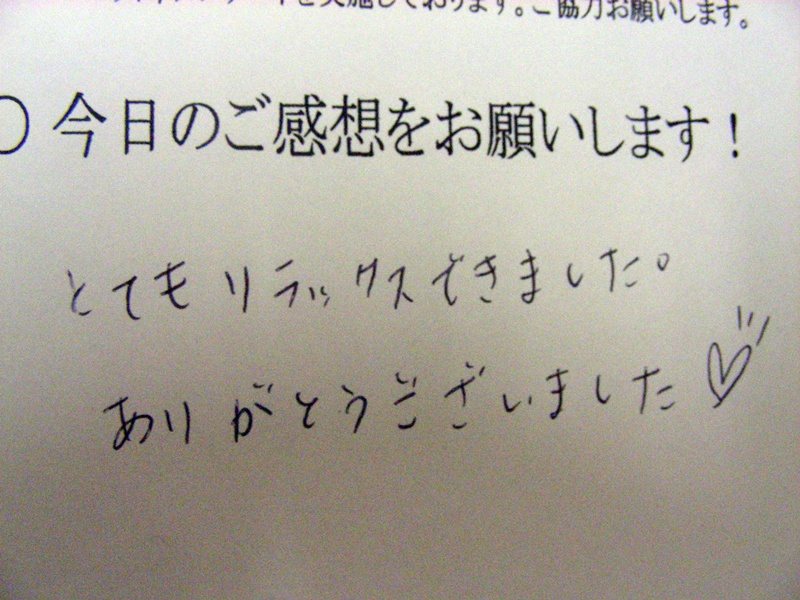 を実施しております。ご協力お願いします。
○ 今日のご感想をお願いします！
とてもリラックスできました。
ありがとうございました♡